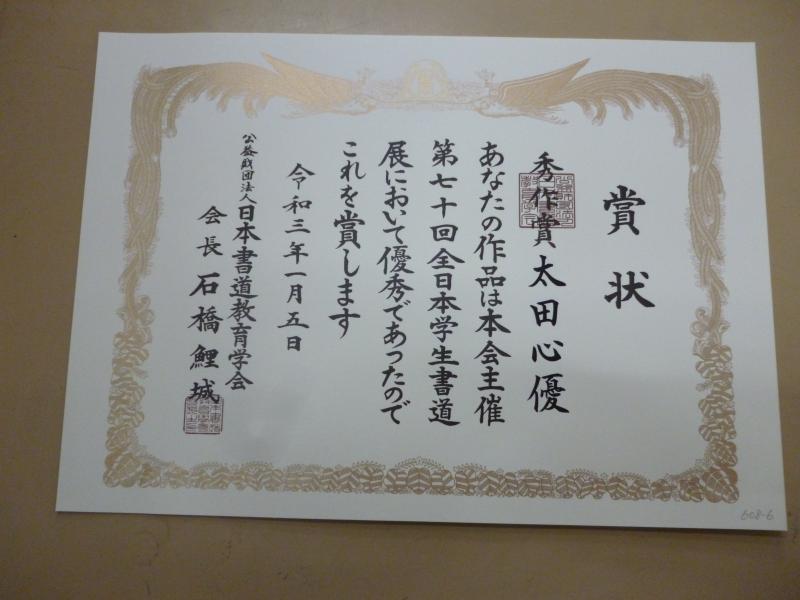 賞状
秀作賞 太田心優
あなたの作品は本会主催
第七十回全日本学生書道
展において優秀であったので
これを賞します
令和三年一月五日
公益財団法人日本書道教育学会
会長 石橋鯉城
608-6